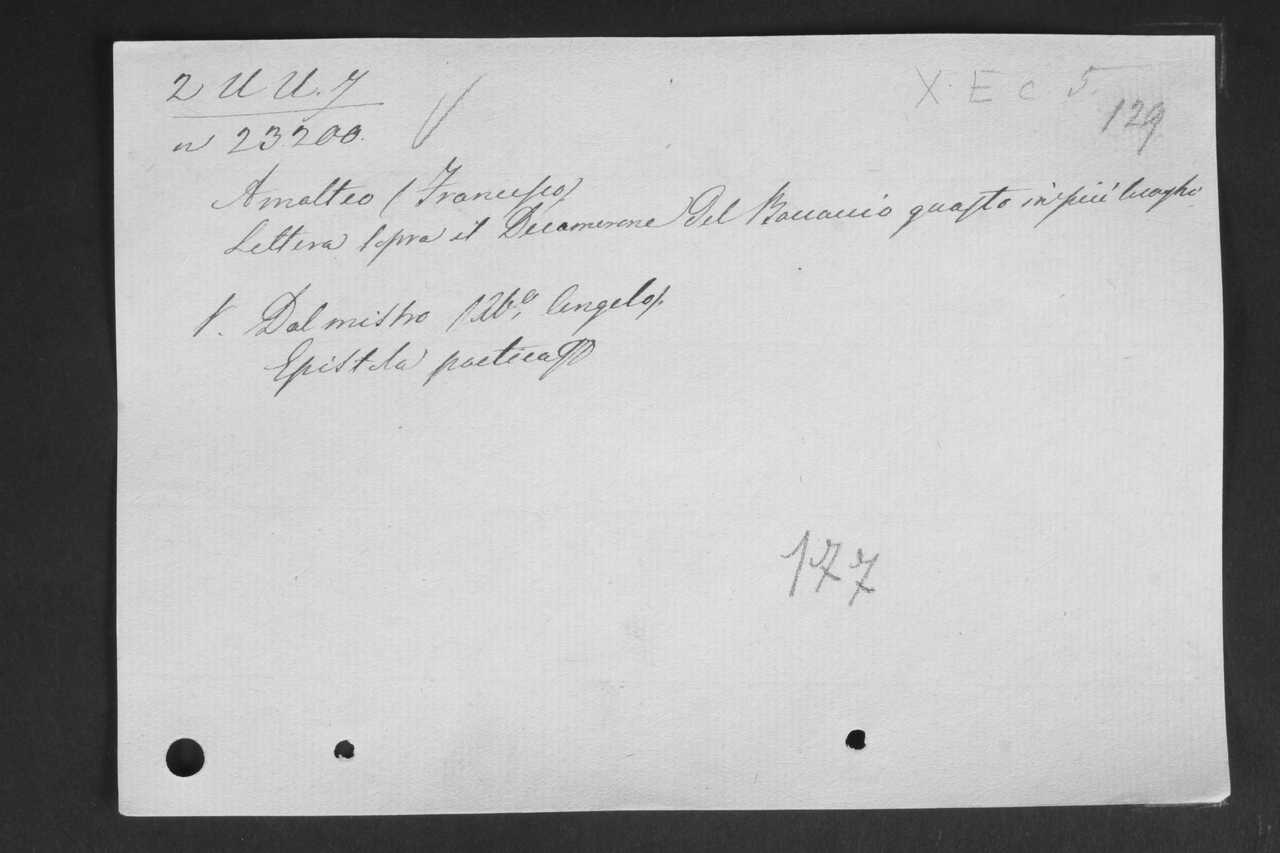 2 U U. 7
X. E c 5.
129
n 23200.
Amalteo (Francesco)
Lettera sopra il Decamerone del Boccaccio guasto in più luoghi
V. Dalmistro (Ab.e Angelo).
Epistola poetica
177